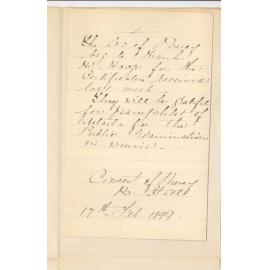 The Srs of Mercy
beg to thank
Mr Hoop for the
Certificates received
last week.
They will be grateful
for pamphlet of
details for the
Public Examination
in
Convent of Mercy
17th Feb. 1899.